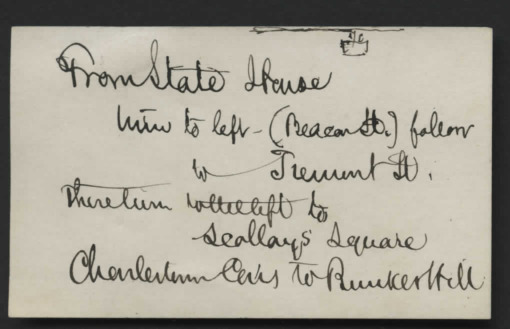 From State House
turn to left - (Beacon St.) follow
to Tremont St.
There turn to the left to
Scollays Square
Charlestown Cars to Bunker Hill